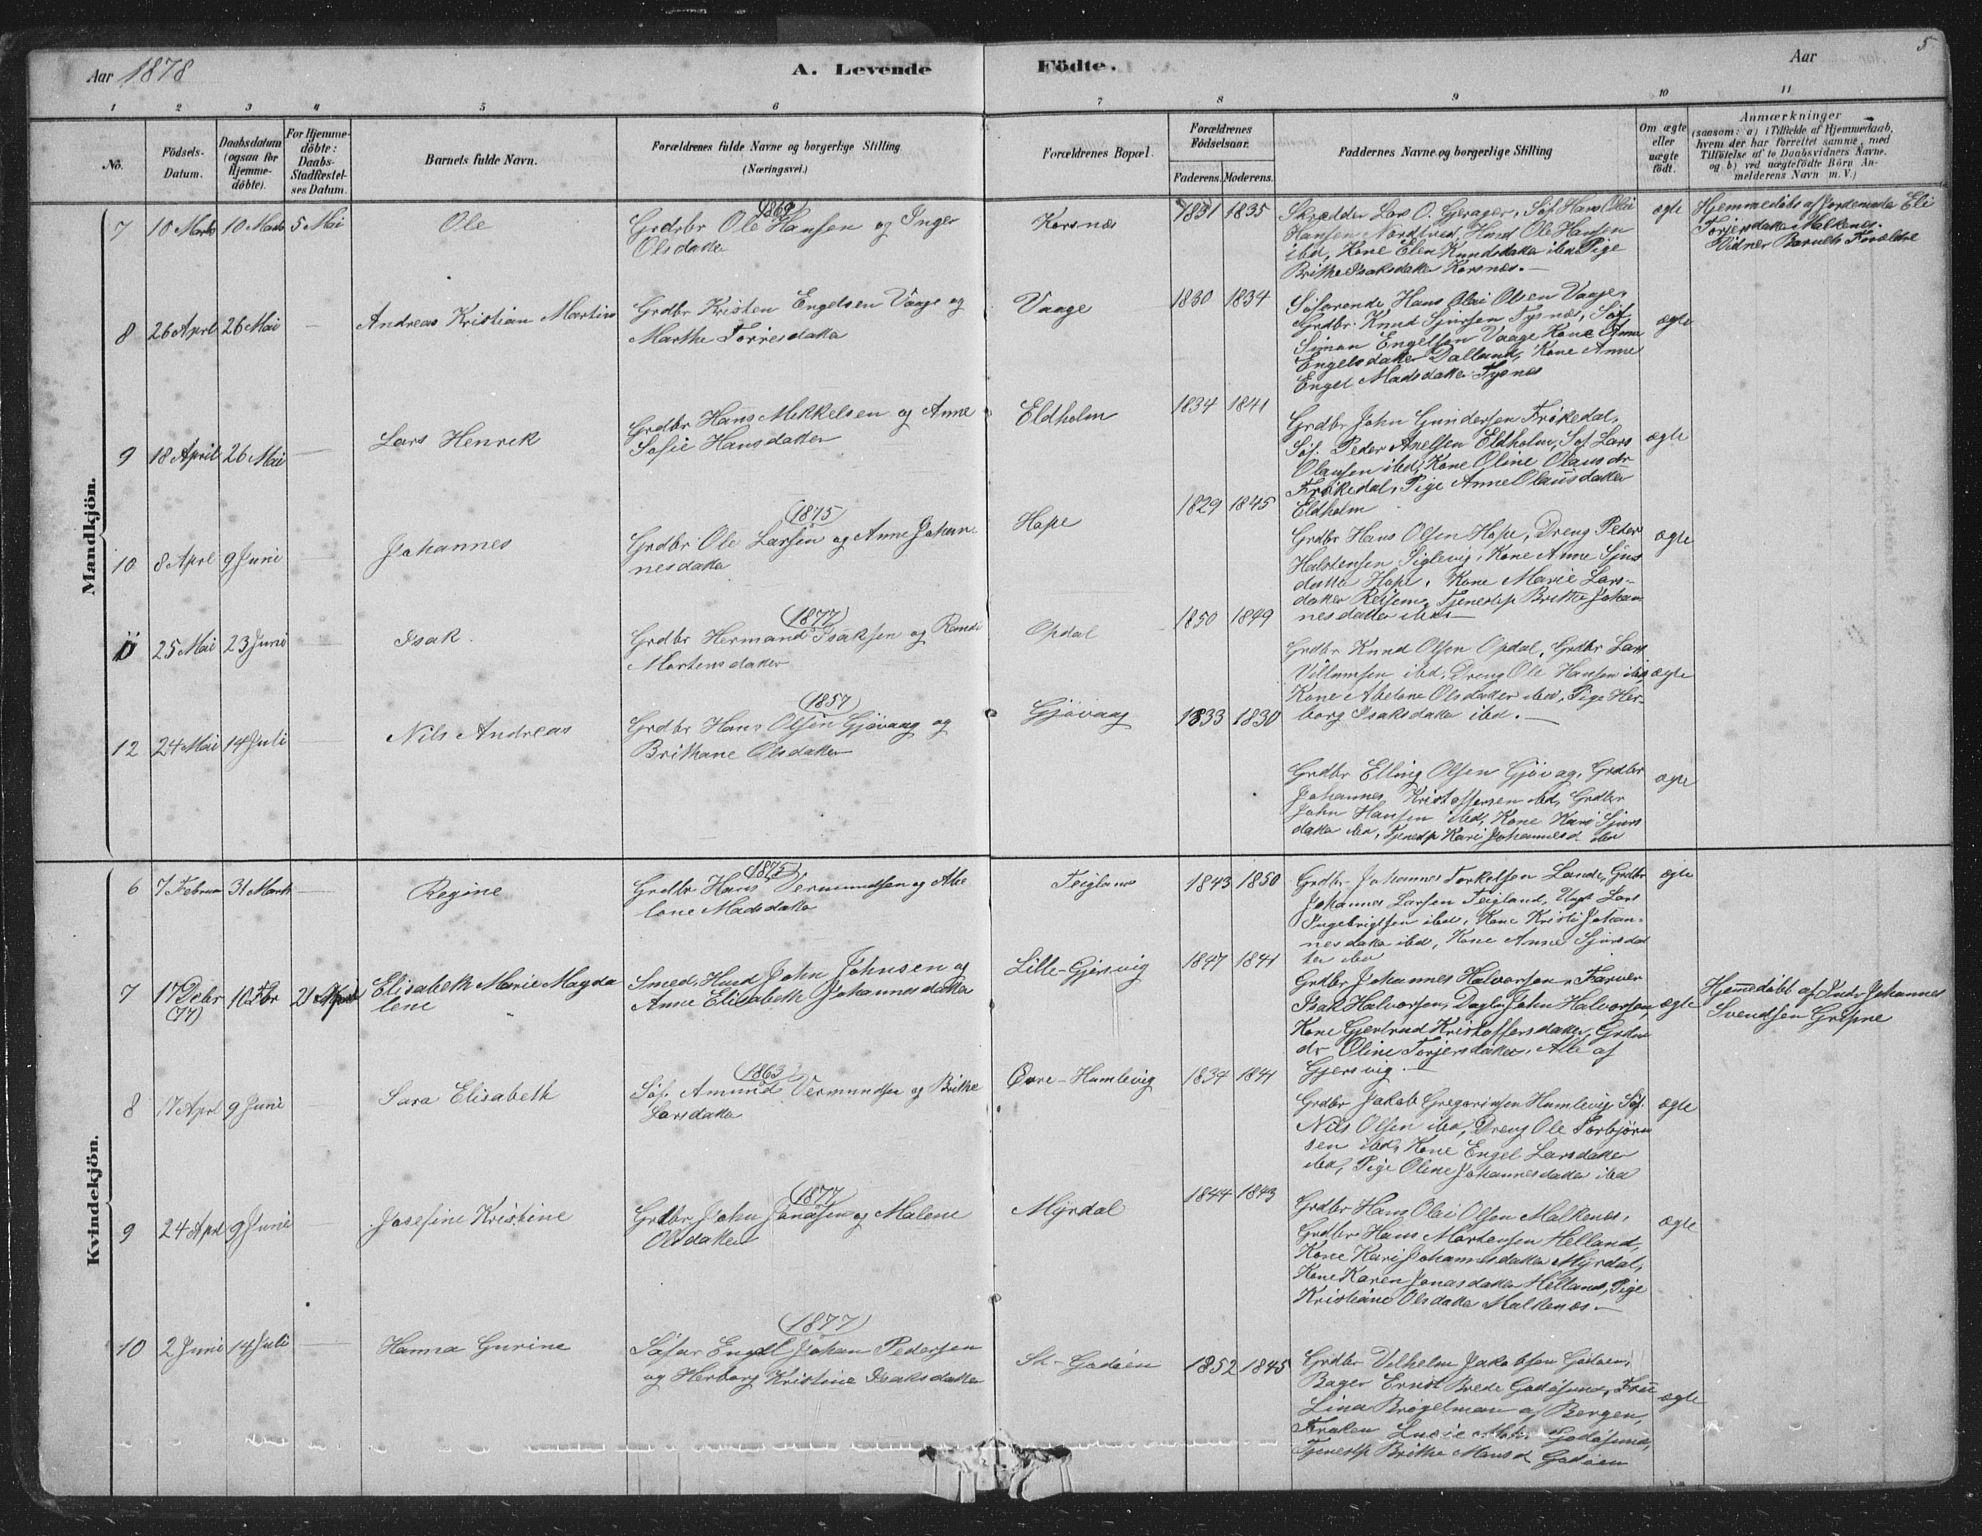 Aar 1878
A. Levende Födte.
Aar
5
1 2 3 4 5 6 7 8 9 10 11
No.
Födsels-Datum.
Daabsdatum (ogsaa for Hjemmedöbte).
For Hjemmedöbte: Daabs-Stadfæstelses Datum.
Barnets fulde Navn.
Forældrenes fulde Navne og borgerlige Stilling (Næringsvei.)
Forældrenes Bopæl.
Forældrenes Födselsaar.
Faderens. Moderens.
Faddernes Navne og borgerlige Stilling
Om ægte eller uægte födt.
Anmærkninger
(saasom: a) i Tilfælde af Hjemmedaab, hvem der har forrettet samme, med Tilföielse af to Daabsvidners Navne. og b) ved uægtefödte Börn Anmelderens Navn m.V.)
Mandkjön.
7 10 Marts 10 Marts 5 Mai
Ole
1862
Grdbr Ole Hansen og Inger
Olsdatter
Korsnæs
1831 1835
Skrædder Lars O. Gjerager, Søf. Hans Olai
Hansen Nordtved, Husd Ole Hansen
ibd, Kone Elen Knudsdatter ibd Pige
Brithe Isaksdatter Korsnæs.
ægte
Hjemmedøbt af Jordemoder Eli
Torjersdatter Malkenes.
Vidner Barnets Forældre
8 26 Aprl 26 Mai —
Andreas Kristian Martin
Grdbr Kristen Engelsen Vaage og
Marthe Torresdatter
Vaage
1830 1834
Søfarende Hans Olai Olsen Vaage,
Grdbr Knud Sjursen Tysnes, Søf
Simon Engelsen Vaage Kone
Engelsdatter Dalland, Kone Anne
Engel Madsdatter Tysnes
ægte
9 18 April 26 Mai —
Lars Henrik
Grdbr Hans Mikkelsen og Anne
Sofie Hansdatter
Eldholm
1834 1841
Grdbr John Gundersen Frøkedal,
Søf. Peder Axelsen Eldholm, Søf Lars
Olausen ibd, Kone Oline Olausdr
Frøkedal, Pige Anne Olausdatter
Eldholm
ægte
10 8 Aprl 9 Juni —
Johannes
(1875)
Grdbr Ole Larsen og Anne Johan
nesdatter
Hope
1829 1845
Grdbr Hans Olsen Hope, Dreng Peder
Halstensen Siglevig, Kone Anne Sjurs
datter Hope, Kone Marie Lars-
datter Reisem, Tjenestp Brithe Johan
nesdatter ibd
ægte
11 25 Mai 23 Juni —
Isak
(1877)
Grdbr Hermand Isaksen og Randi
Mortensdatter
Opdal
1850 1849
Grdbr Knud Olsen Opdal, Grdbr Lars
Villumsen ibd, Dreng Ole Hansen ibd
Kone Abelone Olsdatter ibd, Pige Her-
borg Isaksdatter ibd.
ægte
12 24 Mai 14 Juli
Nils Andreas
(1857)
Grdbr Hans Olsen Gjøvaag og
Brithane Olsdatter
Gjøvaag
1833 1830
Grdbr Elling Olsen Gjøvaag, Grdbr
Johannes Kristoffersen ibd, Grdbr
John Hansen ibd, Kone Kari Sjurs
datter ibd, Tjenestp Kari Johannesd ibd
ægte
Kvindekjön.
6 7 Februar 31 Marts —
Regine
1875
Grdbr Hans Vermundsen og Abe
lone Madsdatter
Teigland
1843 1850
Grdbr Johannes Torkelsen Lande, Grdbr
Johannes Larsen Teigland, Ungk Lars
Ingebrigtsen ibd, Kone Kristi Johan-
nesdatter ibd, Kone Anne Sjursdat
ter ibd
ægte
7 17 Decbr (77) 10 Febr 21 April
Elisabeth Marie Magda
lene
Smed, Husd John Johnsen og
Anne Elisabeth Johannesdatter
Lille-Gjersvig
1847 1841
Grdbr Johannes Halvorsen, Farver
Isak Halvorsen, Dagl. John Halvorsen
Kone Gjertrud Kristoffersdatter, Grdm
dr Oline Torjersdatter, Alle af
Gjersvig.
ægte
Hjemedøbt af Johannes
Svendsen Gripne
8 17 Aprl 9 Juni
Sara Elisabeth
1863
Søf. Amund Vermundsen og Brithe
Larsdatter
Øvre-Humlevig
1834 1841
Grdbr Jakob Gregoriusen Humlevig, Søf.
Nils Olsen ibd, Dreng Ole Torbjørn
sen ibd, Kone Engel Larsdatter
ibd, Pige Oline Johannesdatter ibd
ægte
9 24 Aprl 9 Juni —
Josefine Kristine
(1877)
Grdbr John Jonassen og Malene
Olsdatter
Myrdal
1844 1843
Grdbr Hans Olai Olsen Malkenes,
Grdbr Hans Mortensen Helland,
Kone Kari Johannesdatter Myrdal,
Kone Karen Jonasdatter Helland, Pige
Kristiane Olsdatter Malkenes.
ægte
10 2 Juni 14 Juli —
Hanna Gurine
(1877)
Søfar Engel Johan Pedersen
og Herborg Kristine Isaksdatter
St-Godøen
1852 1845
Grdbr Vilhelm Jakobsen Godøen,
Bager Ernst Brede Godøsund, Frue
Lina Brøgelman af Bergen,
Frøken Lusie Godøsund,
Tjenestp Brithe Monsd Godøen
ægte